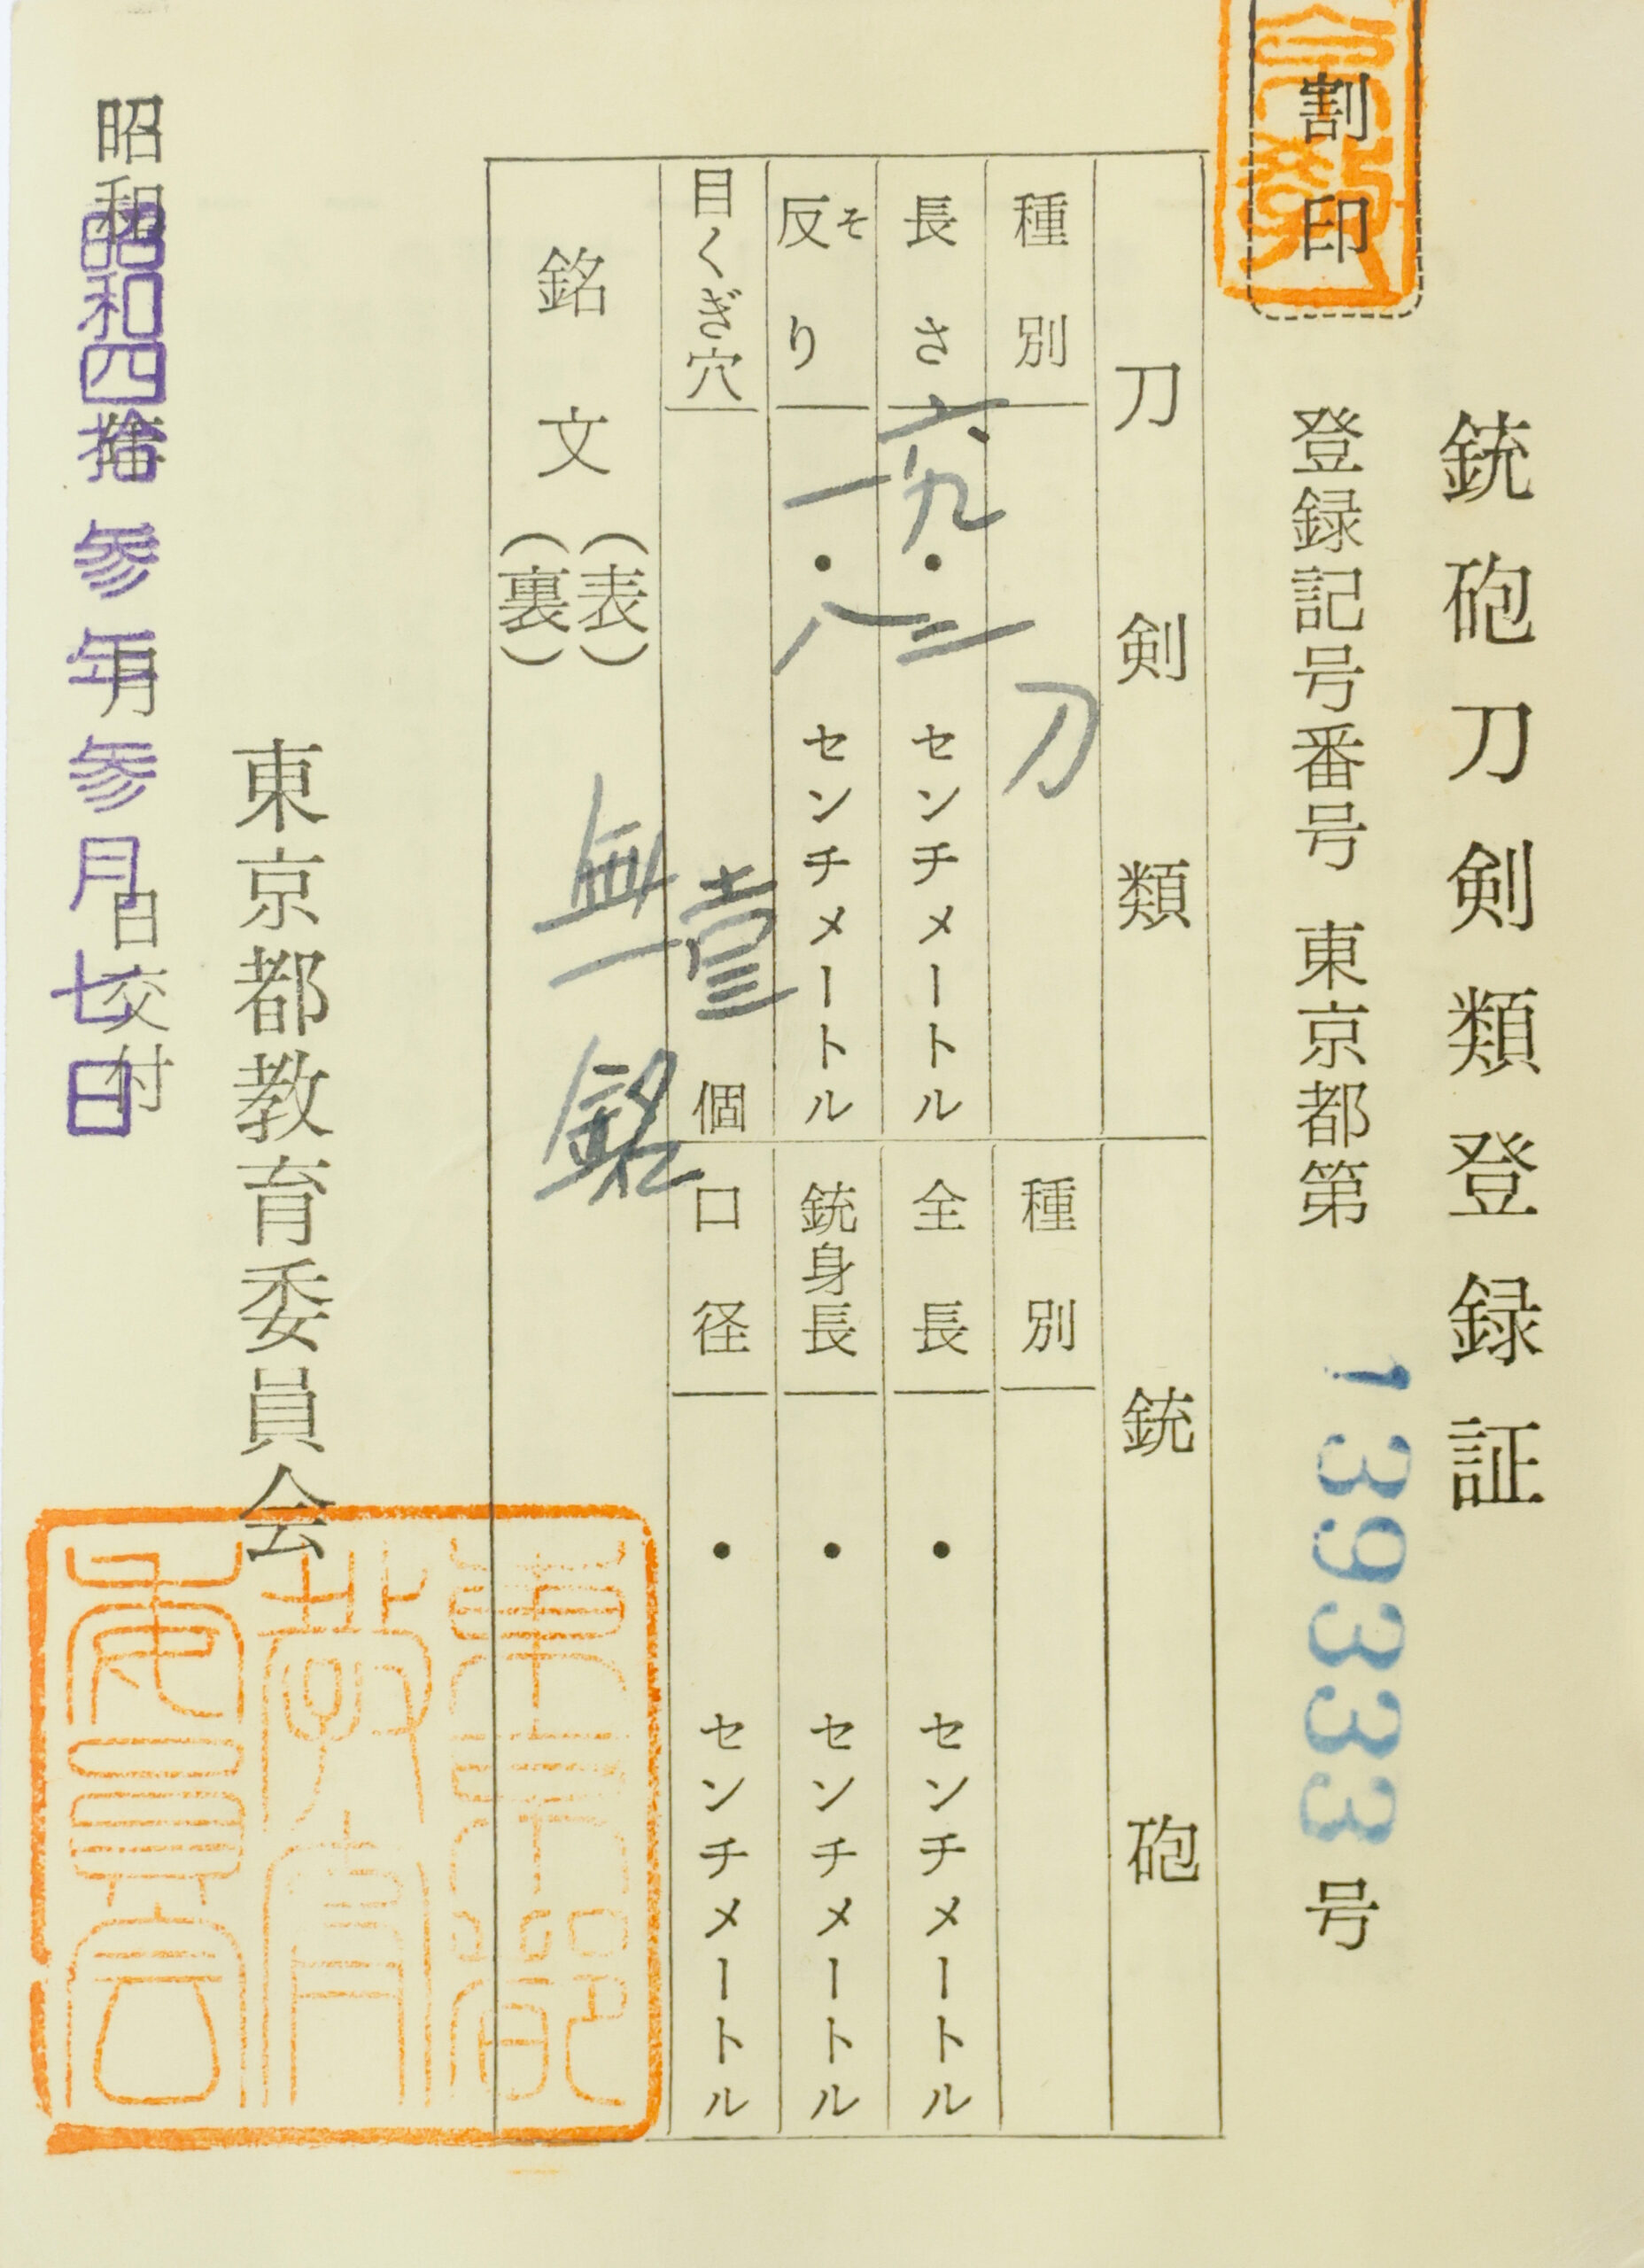 銃砲刀剣類登録証
割印
登録記号番号 東京都第 139333号
刀剣類
種別 刀
長さ 六九・二 センチメートル
反り そ 一・八 センチメートル
目くぎ穴 壹 個
銘文 (表) (裏) 無銘
銃砲
種別
全長 ・ センチメートル
銃身長 ・ センチメートル
口径 ・ センチメートル
東京都教育委員会
昭和 年 月 日交付
昭和四拾参年参月七日
東京都
教育
委員会